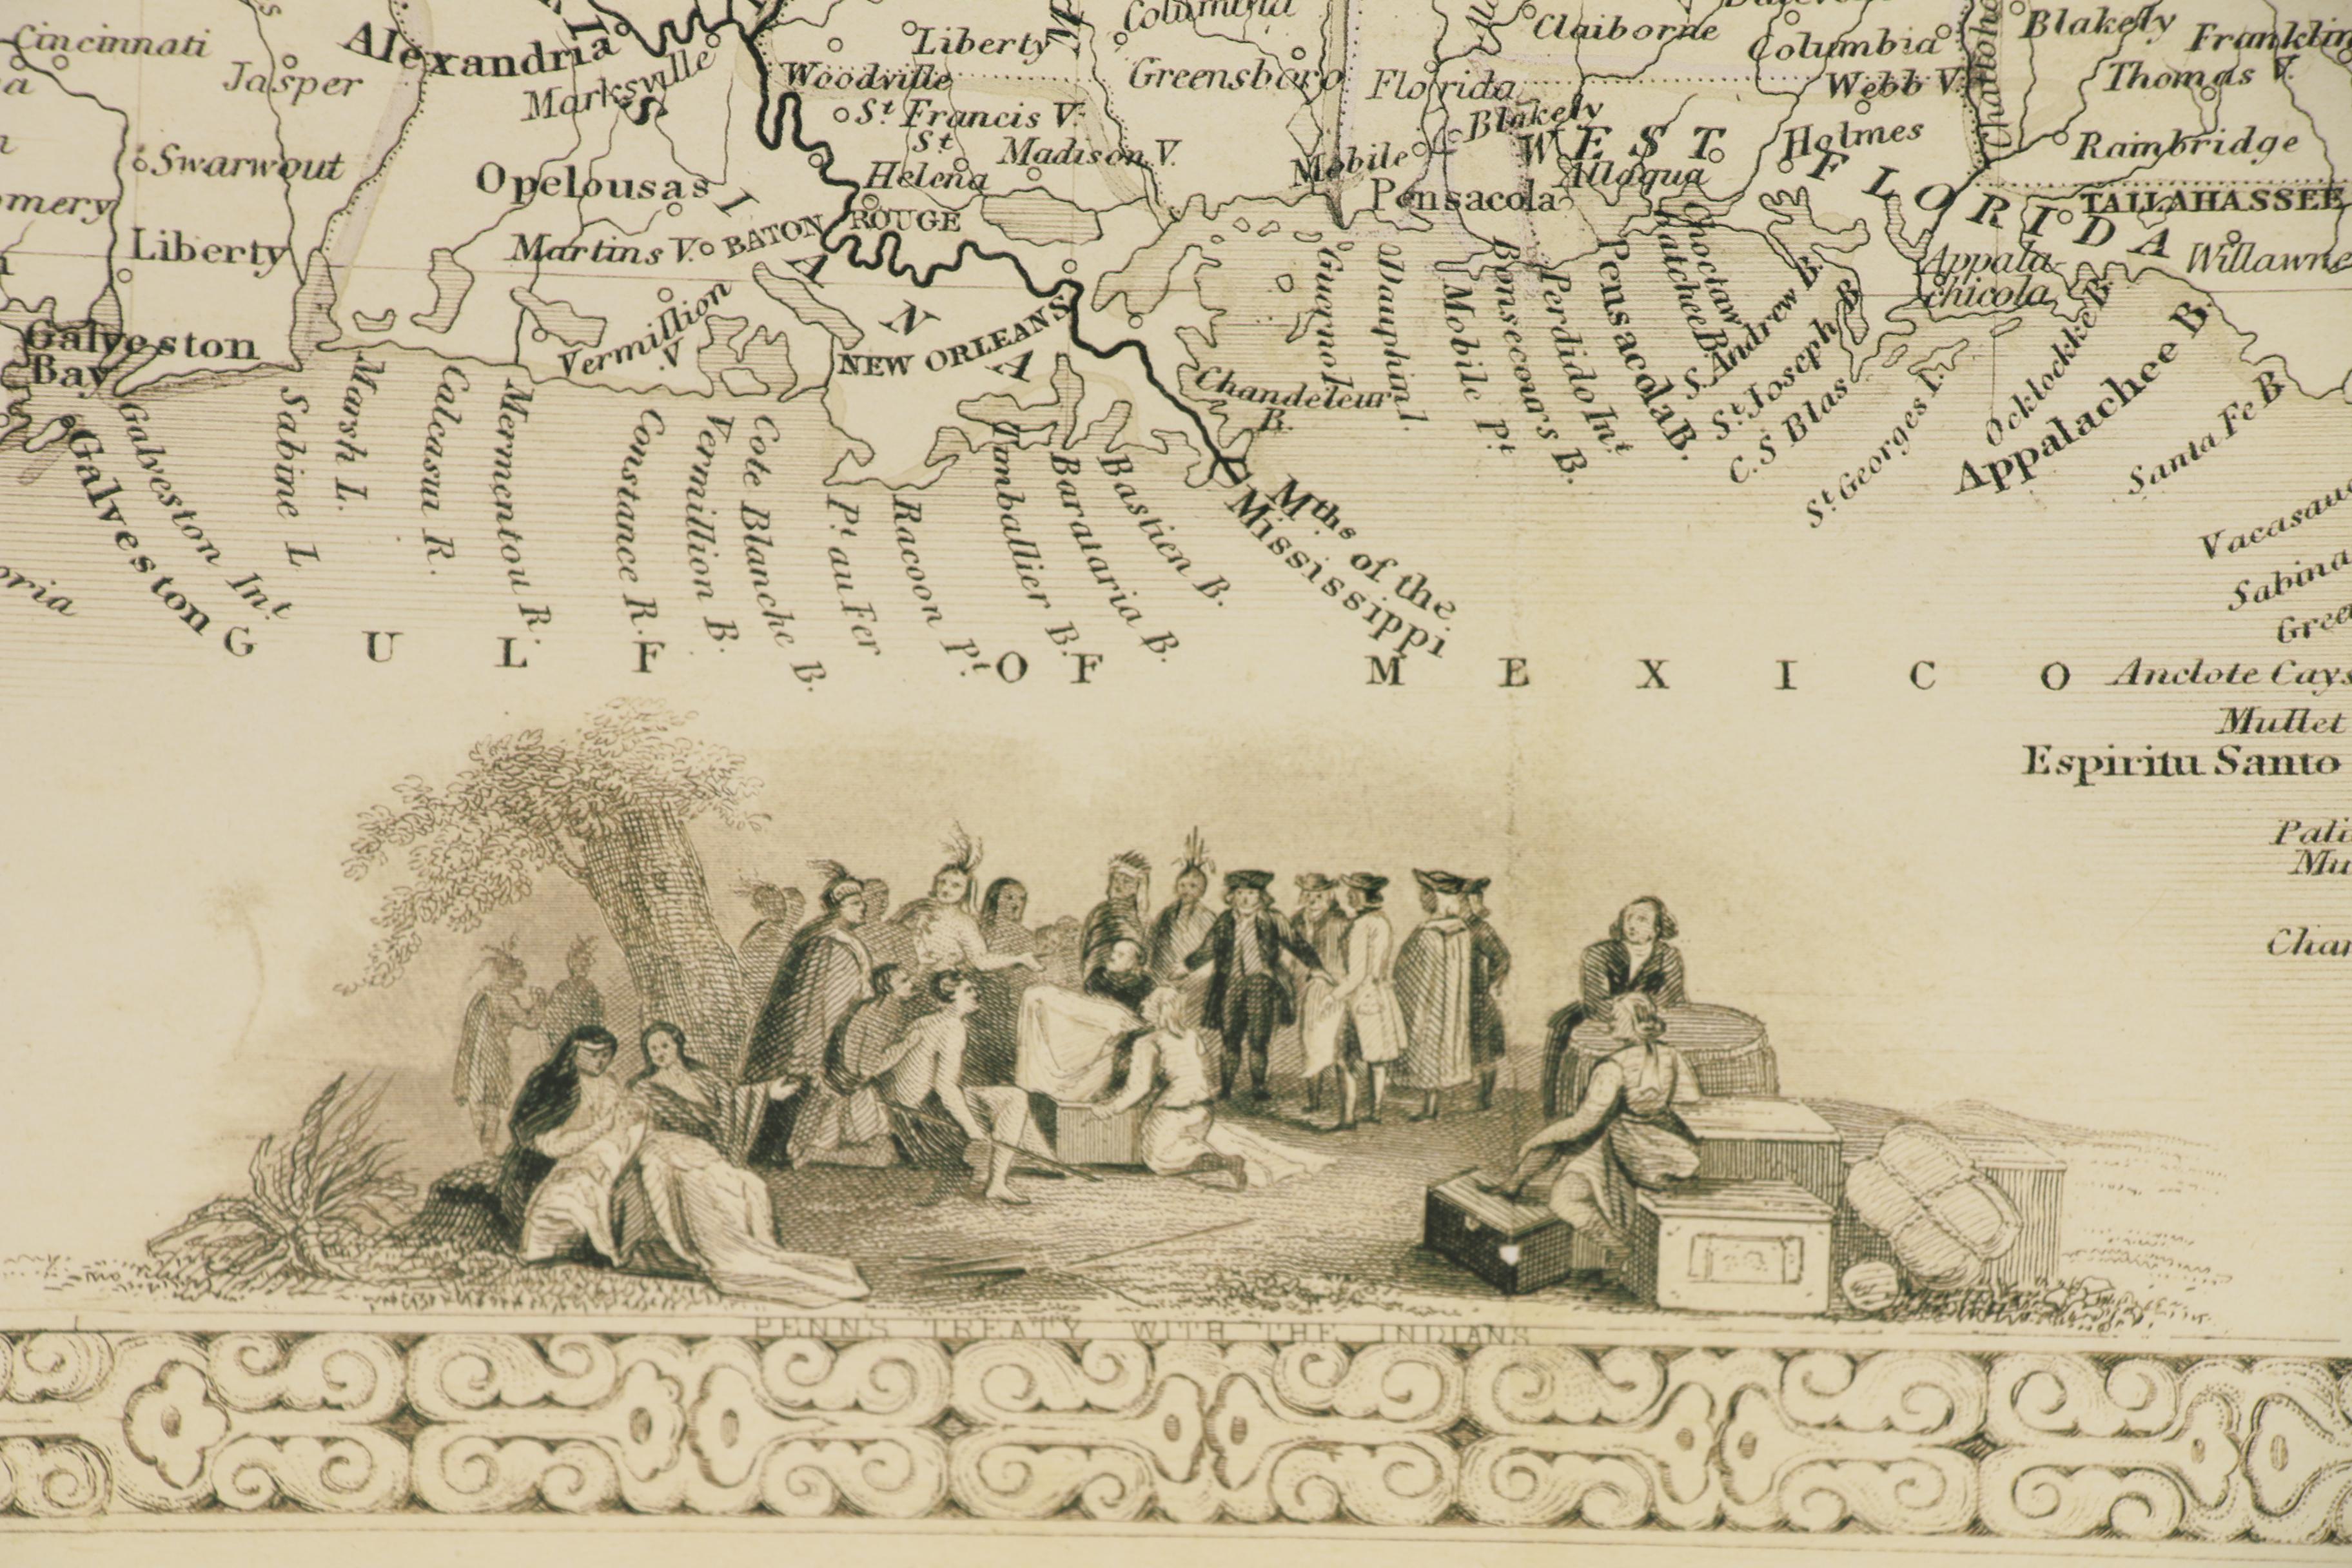 Cincinnati
Jasper
Alexandria
Marksville
Liberty
Woodville
Columbia
Greensboro
Claiborne
Florida
Columbia
Webb V.
Blakely
Franklin
Thomas V.
Chattaho
St Francis V.
St
Helena
Madison V.
Mobile
Blakely
Pensacola
Allaqua
Holmes
Rainbridge
WEST FLORIDA
TALLAHASSEE
Swarwout
omery
Liberty
Opelousas
Martins V.
BATON ROUGE
SIANA
Vermillion
V.
NEW ORLEANS
Galveston
Bay
Chandeleur
B.
Appala-
chicola
Willawne
Galveston
Galveston Int
Sabine L
Marsh L.
Calcasun R.
Mermentou R.
Constance R.
Vermillion B.
Cote Blanche B.
Pt au Fer
Racoon Pt
Timballier B.
Barataria B.
Bastien B.
Mths of the
Mississippi
Dauphin I.
Mobile Pt
Bonsecours B.
Perdido Int
Pensacola B.
Choctaw
hatchee B.
S. Andrew B.
St Joseph B.
C. S Blas
St Georges I.
Ocklockke B.
Appalachee B.
Santa Fe B
Vacasau
Sabina
Gree
oria
GULF OF MEXICO
Anclote Cays
Mullet
Espiritu Santo
Pali
Mu
Char
PENN'S TREATY WITH THE INDIANS